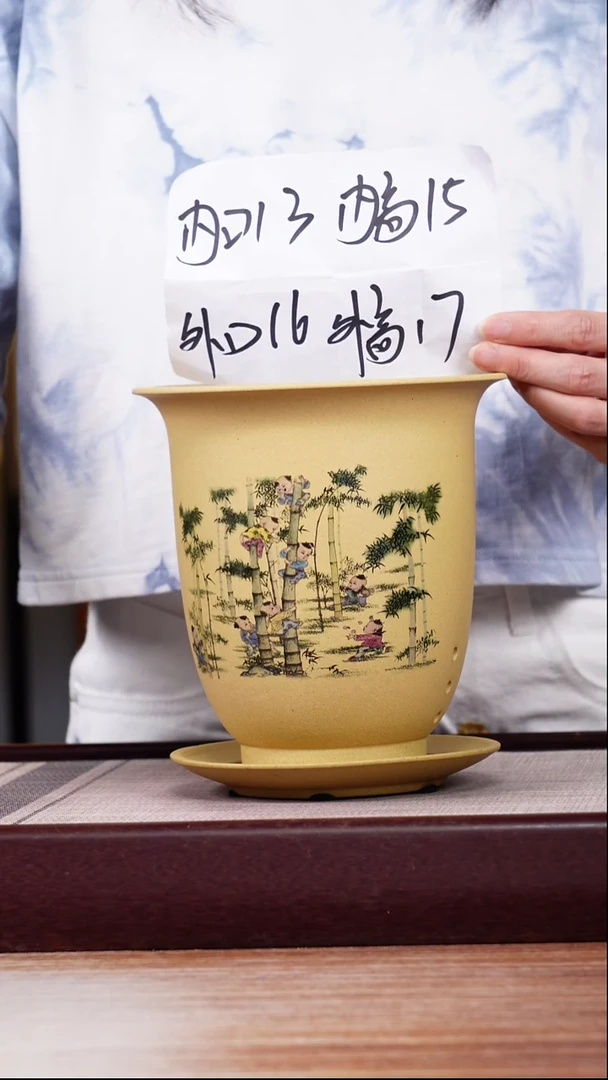 内口13 内高15
外口16 外高17